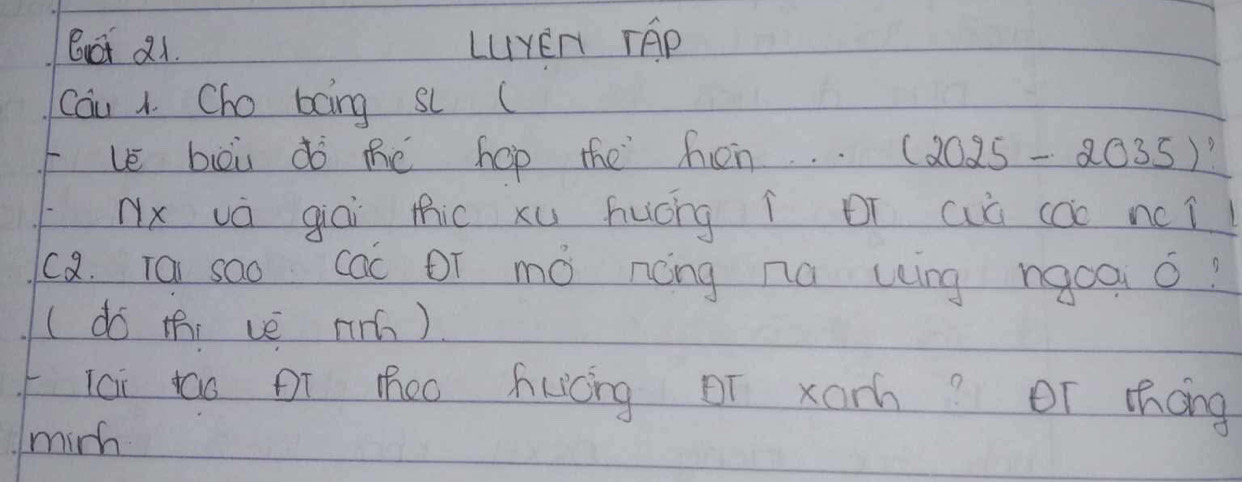 Buổi 21. LUYỆN TẬP
Câu 1. Cho bảng SL (
- Vẽ biểu đồ thế hợp thể hiện ... (2025 - 2035)?
- Nx và giải thíc xu hướng ↑ ĐT của các nc ↑!
C2. Tại sao các ĐT mở rộng ra vùng ngoại ô?
(đô thị vệ tinh)
- Tái tạo ĐT theo hướng ĐT xanh? ĐT thông
minh.